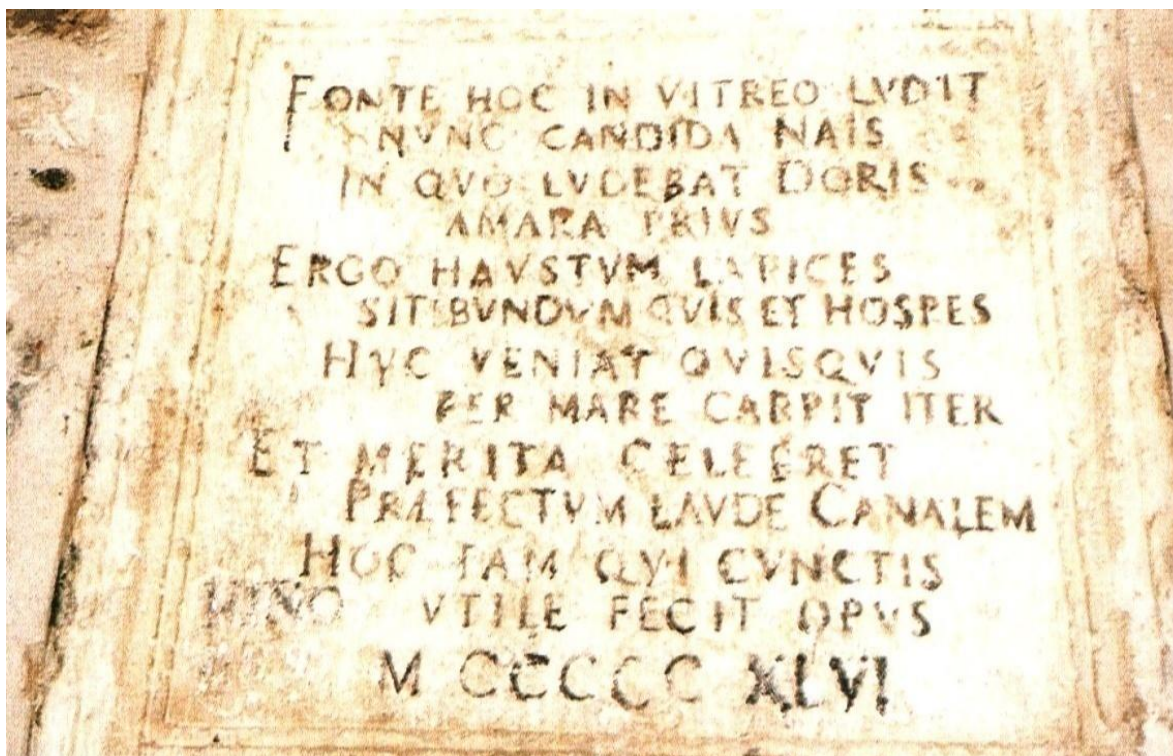 FONTE HOC IN VITREO LVDIT
NVNC CANDIDA NAIS
IN QVO LVDEBAT DORIS
AMARA PRIVS
ERGO HAVSTVM LATICES
SITIBVNDVM QVIS ET HOSPES
HVC VENIAT QVISQVIS
PER MARE CARPIT ITER
ET MERITA CELEBRET
PRÆFECTVM LAVDE CANALEM
HOC TAM QVI CVNCTIS
VTILE FECIT OPVS
M CCCCC XLVI